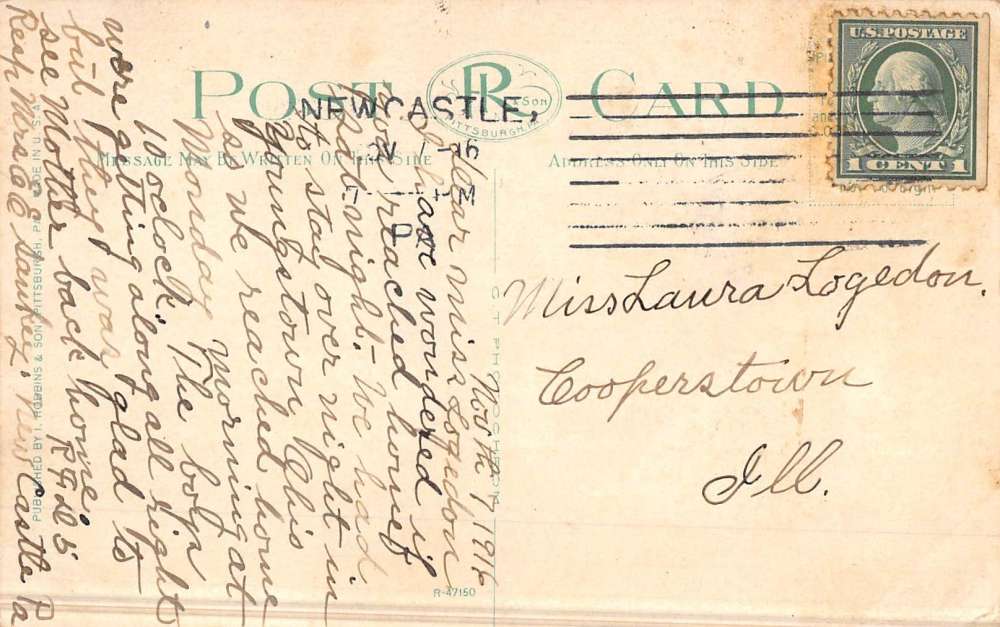 POST CARD
R
& SON
PITTSBURGH, PA.
MESSAGE MAY BE WRITTEN ON THIS SIDE
ADDRESS ONLY ON THIS SIDE
U.S. POSTAGE
1 CENT 1
NEW CASTLE,
Miss Laura Logedon.
Cooperstown
Ill.
Nov 7 1916
Dear Miss Logedon
have wondered if
you reached home
last night. We had
to stay over night in
Youngstown Ohio
so we reached home
Monday morning at
10 oclock. The boys
were getting along all right
but they was glad to
see Mother back home.
R F D 5
Resp Mrs C E Sankey. New Castle Pa
PUBLISHED BY I. ROBBINS & SON, PITTSBURGH, PA. MADE IN U.S.A.
R-47150